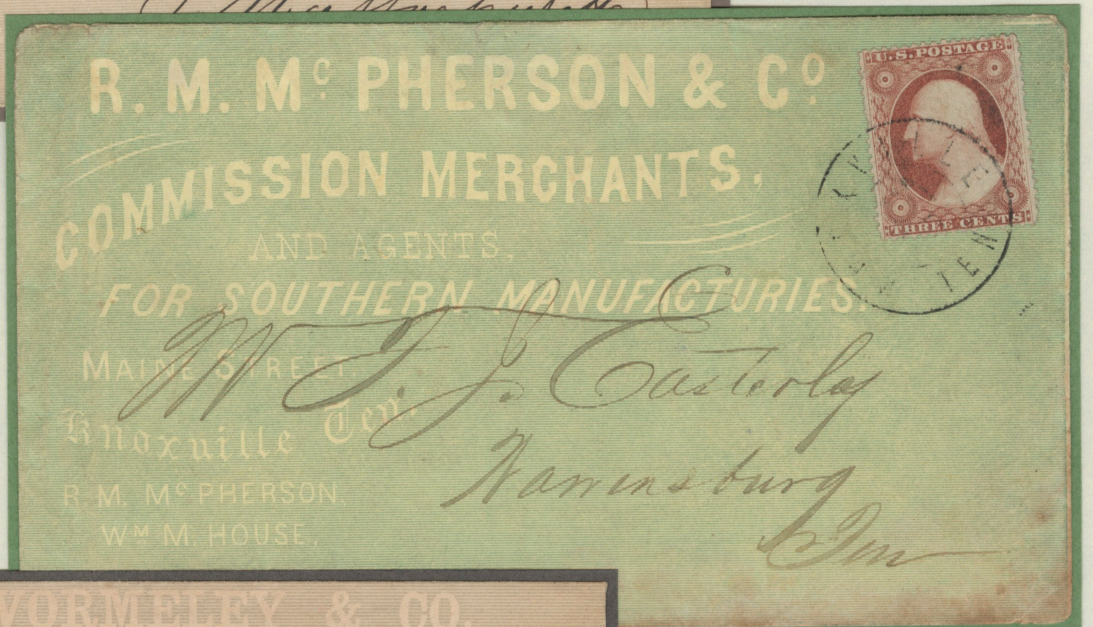 R. M. Mc PHERSON & Co
COMMISSION MERCHANTS,
AND AGENTS,
FOR SOUTHERN MANUFACTURIES.
MAINE STREET,
Knoxville Ten.
R. M. Mc PHERSON.
WM M. HOUSE.
U.S. POSTAGE
THREE CENTS
TEN
Mr T. J. Easterley
Warrensburg
Ten
WORMELEY & CO.